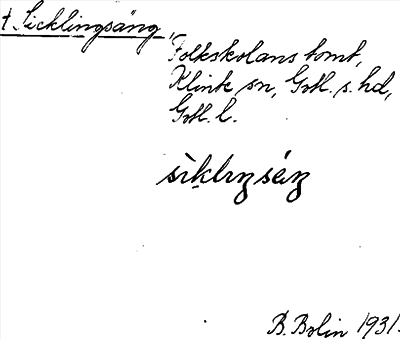 t. Sicklingsäng,
Folkskolans tomt,
Klinte sn, Gotl. s. hd,
Gotl. l.
B. Bolin 1931.